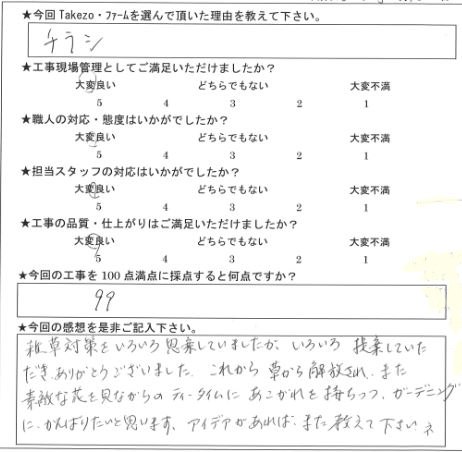 ★今回Takezo・ファームを選んで頂いた理由を教えて下さい。
チラシ
★工事現場管理としてご満足いただけましたか？
大変良い どちらでもない 大変不満
5 4 3 2 1
★職人の対応・態度はいかがでしたか？
大変良い どちらでもない 大変不満
5 4 3 2 1
★担当スタッフの対応はいかがでしたか？
大変良い どちらでもない 大変不満
5 4 3 2 1
★工事の品質・仕上がりはご満足いただけましたか？
大変良い どちらでもない 大変不満
5 4 3 2 1
★今回の工事を100点満点に採点すると何点ですか？
99
★今回の感想を是非ご記入下さい。
雑草対策をいろいろ思案していましたが、いろいろ 提案していた
だき、ありがとうございました。これから 草から解放され、また
素敵な花を見ながらのティータイムに あこがれを持ちつつ、ガーデニング
に、がんばりたいと思います。アイデアがあれば、また教えて下さいネ